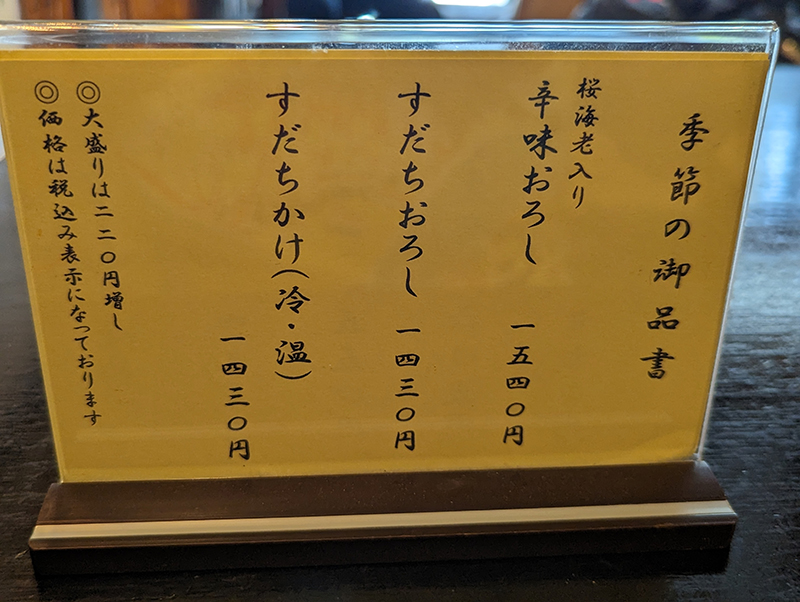 季節の御品書
桜海老入り
辛味おろし
一五四〇円
すだちおろし
一四三〇円
すだちかけ(冷・温)
一四三〇円
◎大盛りは二二〇円増し
◎価格は税込み表示になっております